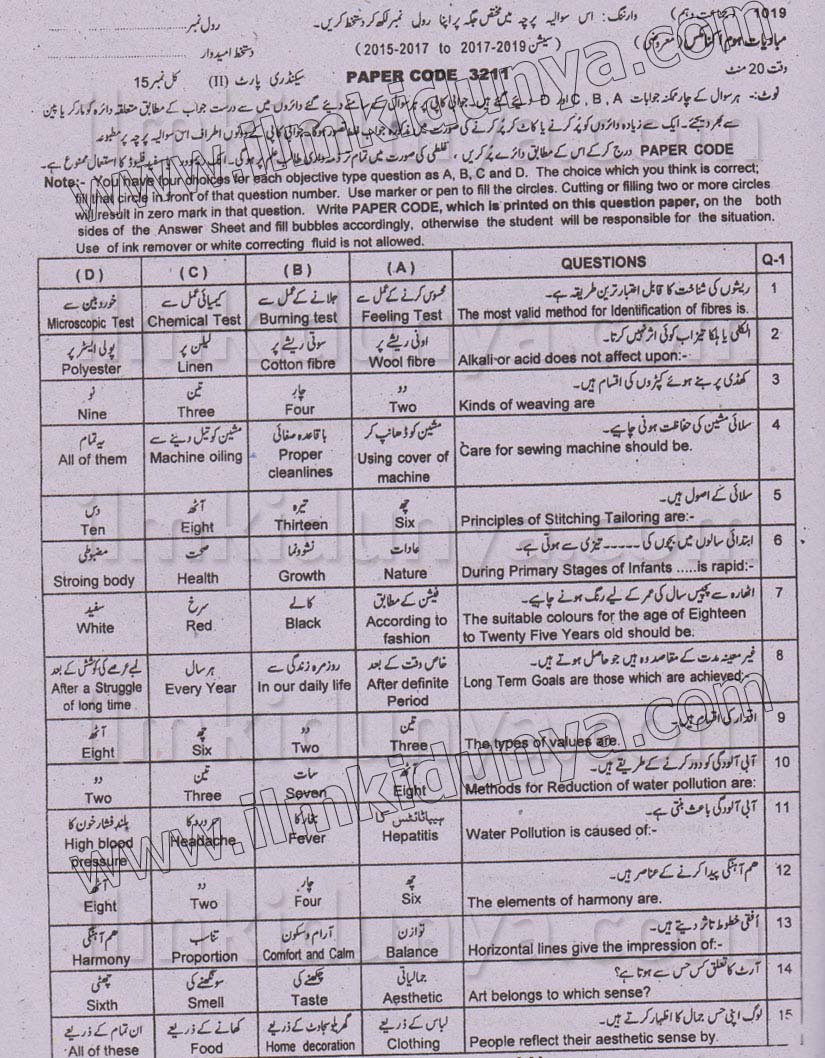 1019 (جماعت دہم) وارننگ: اس سوالیہ پرچہ میں مختص جگہ پر اپنا رول نمبر لکھ کر دستخط کریں۔ رول نمبر
مبادیات ہوم اکنامکس (معروضی) (سیشن 2017-2019 to 2015-2017) دستخط امیدوار
وقت 20 منٹ PAPER CODE 3211 سیکنڈری پارٹ (II) کل نمبر 15
نوٹ:- ہر سوال کے چار ممکنہ جوابات A, B, C اور D دیئے گئے ہیں۔ جوابی کاپی پر ہر سوال کے سامنے دیئے گئے دائروں میں سے درست جواب کے مطابق متعلقہ دائرہ کو مارکر یا پین
سے بھر دیجئے۔ ایک سے زیادہ دائروں کو پُر کرنے یا کاٹ کر پُر کرنے کی صورت میں مذکورہ جواب غلط تصور ہوگا۔ جوابی کاپی کے دونوں اطراف اس سوالیہ پرچہ پر مطبوعہ
PAPER CODE درج کر کے اس کے مطابق دائرے پُر کریں، غلطی کی صورت میں تمام تر ذمہ داری طالب علم پر ہوگی۔ انک ریموور یا سفید فلیوڈ کا استعمال ممنوع ہے۔
Note:- You have four choices for each objective type question as A, B, C and D. The choice which you think is correct;
fill that circle in front of that question number. Use marker or pen to fill the circles. Cutting or filling two or more circles
will result in zero mark in that question. Write PAPER CODE, which is printed on this question paper, on the both
sides of the Answer Sheet and fill bubbles accordingly, otherwise the student will be responsible for the situation.
Use of ink remover or white correcting fluid is not allowed.
(D) (C) (B) (A) QUESTIONS Q-1
خوردبین سے کیمیائی عمل سے جلانے کے عمل سے محسوس کرنے کے عمل سے ریشوں کی شناخت کا قابل اعتبار ترین طریقہ ہے۔ 1
Microscopic Test Chemical Test Burning test Feeling Test The most valid method for Identification of fibres is.
پولی ایسٹر پر لینن پر سوتی ریشے پر اونی ریشے پر الکلی یا ہلکا تیزاب کوئی اثر نہیں کرتا۔ 2
Polyester Linen Cotton fibre Wool fibre Alkali or acid does not affect upon:-
نو تین چار دو کھڈی پر بنے ہوئے کپڑوں کی اقسام ہیں۔ 3
Nine Three Four Two Kinds of weaving are
یہ تمام مشین کو تیل دینے سے باقاعدہ صفائی مشین کو ڈھانپ کر سلائی مشین کی حفاظت ہونی چاہیے۔ 4
All of them Machine oiling Proper cleanlines Using cover of machine Care for sewing machine should be.
دس آٹھ تیرہ چھ سلائی کے اصول ہیں۔ 5
Ten Eight Thirteen Six Principles of Stitching Tailoring are:-
مضبوطی صحت نشوونما عادات ابتدائی سالوں میں بچوں کی ----- تیزی سے ہوتی ہے۔ 6
Stroing body Health Growth Nature During Primary Stages of Infants .....is rapid:-
سفید سرخ کالے فیشن کے مطابق اٹھارہ سے پچیس سال کی عمر کے لیے رنگ ہونے چاہیے۔ 7
White Red Black According to fashion The suitable colours for the age of Eighteen
to Twenty Five Years old should be.
لمبے عرصے کی کوشش کے بعد ہر سال روزمرہ زندگی سے خاص وقت کے بعد غیر معینہ مدت کے مقاصد وہ ہیں جو حاصل ہوتے ہیں۔ 8
After a Struggle of long time Every Year In our daily life After definite Period Long Term Goals are those which are achieved:-
آٹھ چھ دو تین اقدار کی اقسام ہیں۔ 9
Eight Six Two Three The types of values are.
دو تین سات آٹھ آبی آلودگی کو دور کرنے کے طریقے ہیں۔ 10
Two Three Seven Eight Methods for Reduction of water pollution are:
بلند فشار خون کا سر درد کا بخار کا ہیپاٹائٹس آبی آلودگی باعث بنتی ہے۔ 11
High blood pressure Headache Fever Hepatitis Water Pollution is caused of:-
آٹھ دو چار چھ ہم آہنگی پیدا کرنے کے عناصر ہیں۔ 12
Eight Two Four Six The elements of harmony are.
ہم آہنگی تناسب آرام و سکون توازن افقی خطوط تاثر دیتے ہیں۔ 13
Harmony Proportion Comfort and Calm Balance Horizontal lines give the impression of:-
چھٹی سونگھنے کی چکھنے کی جمالیاتی آرٹ کا تعلق کس حس سے ہوتا ہے؟ 14
Sixth Smell Taste Aesthetic Art belongs to which sense?
ان تمام کے ذریعے کھانے کے ذریعے گھریلو سجاوٹ کے ذریعے لباس کے ذریعے لوگ اپنی حس جمال کا اظہار کرتے ہیں۔ 15
All of these Food Home decoration Clothing People reflect their aesthetic sense by.
www.ilmkidunya.com
www.ilmkidunya.com
ilmkidunya.com